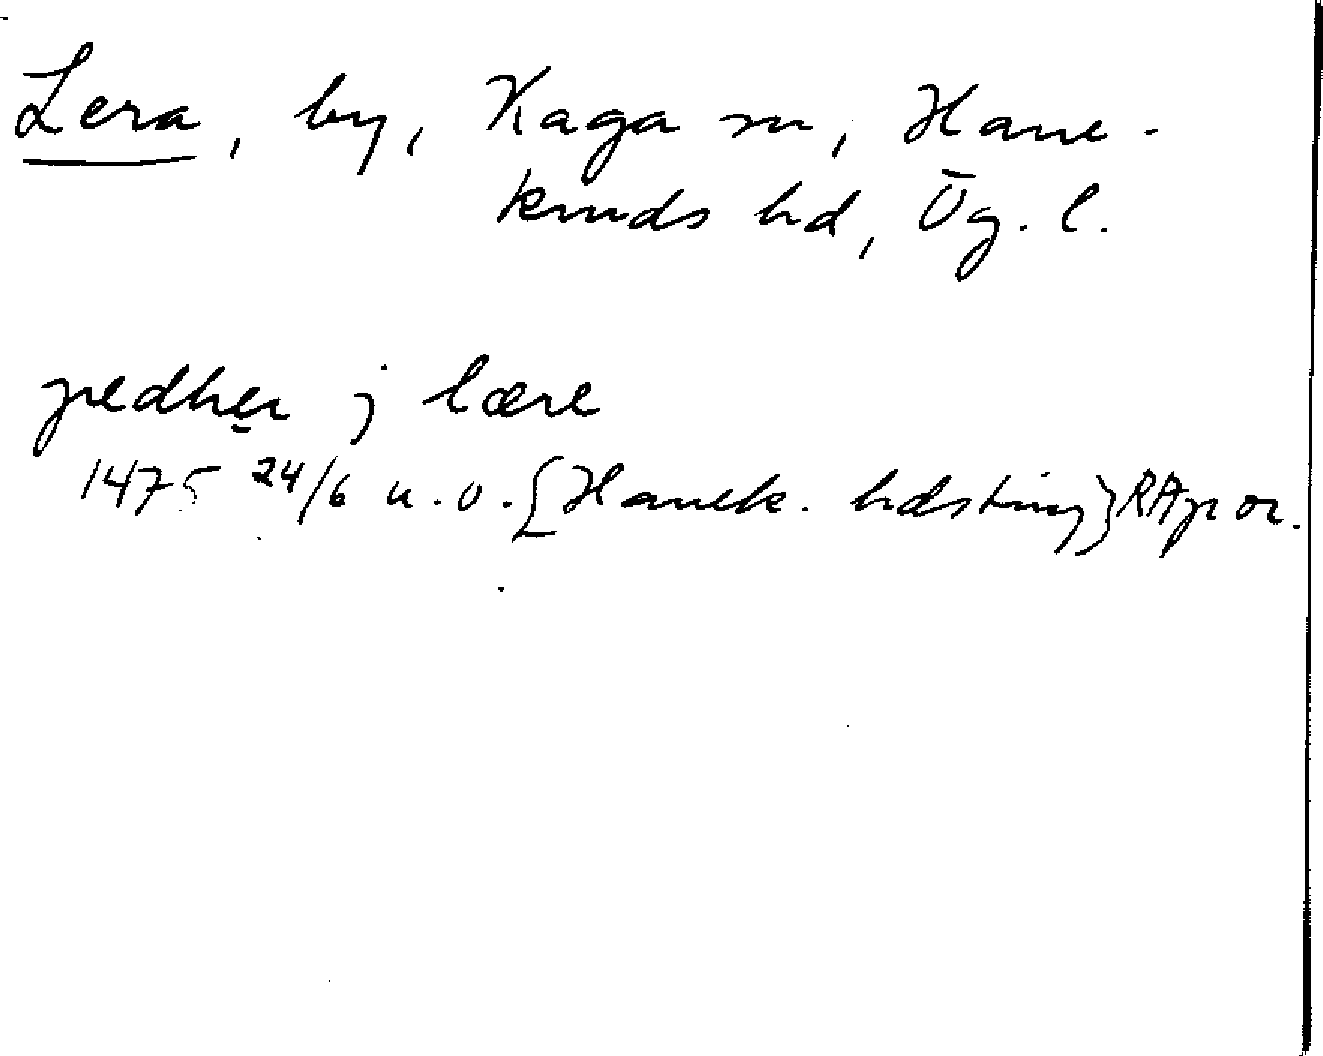 Lera, by, Kaga sn, Hane-
kinds hd, Ög. l.
pedher j lære
1475 24/6 u.o. [Hanek. hdsting] RAp or.